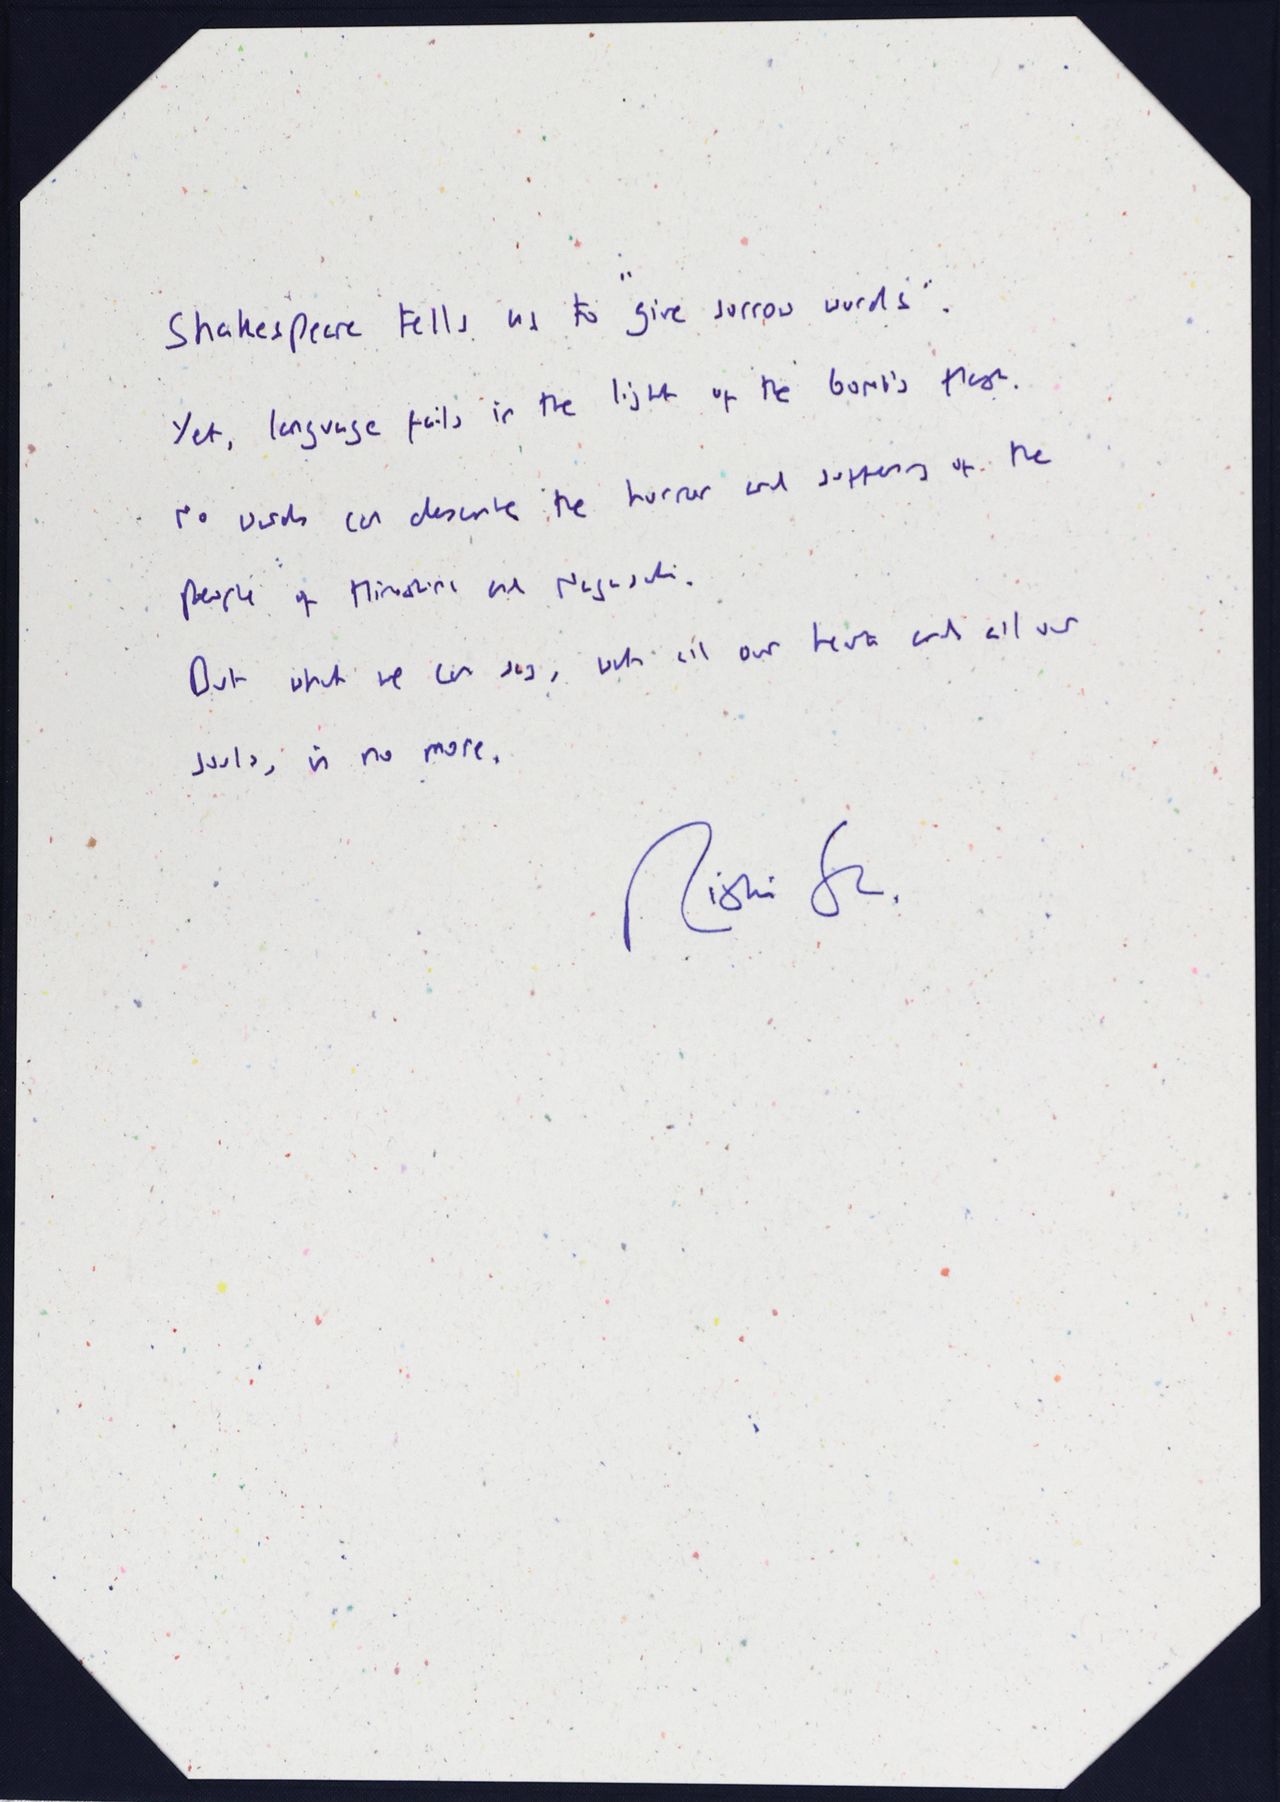 Shakespeare tells us to "give sorrow words".
Yet, language fails in the light of the bomb's flash.
No words can describe the horror and suffering of the
people of Hiroshima and Nagasaki.
But what we can say, with all our hearts and all our
souls, is no more.
Rishi S